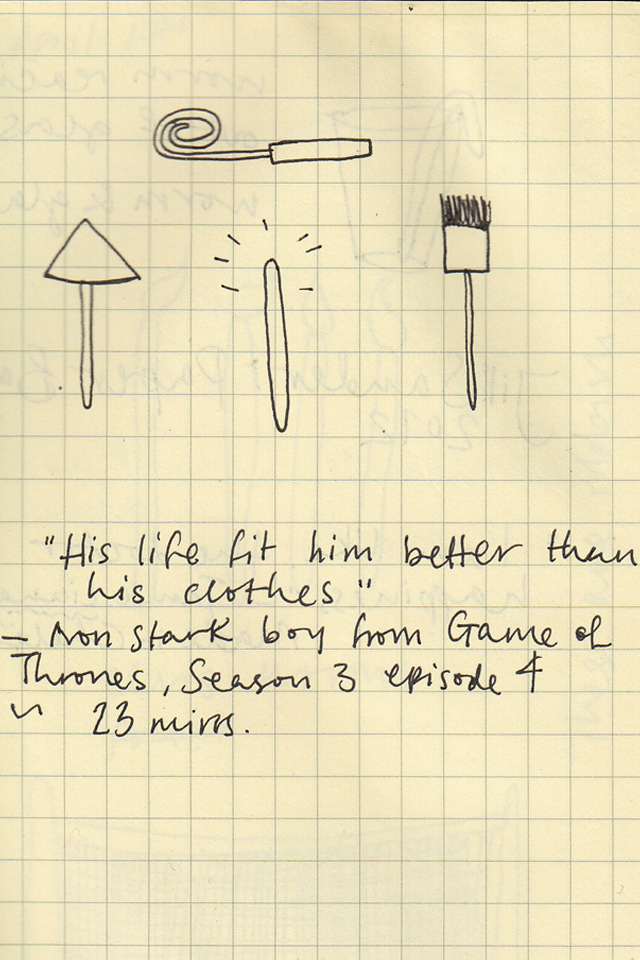 "His life fit him better than
his clothes"
– Non Stark boy from Game of
Thrones, Season 3 episode 4
~ 23 mins.